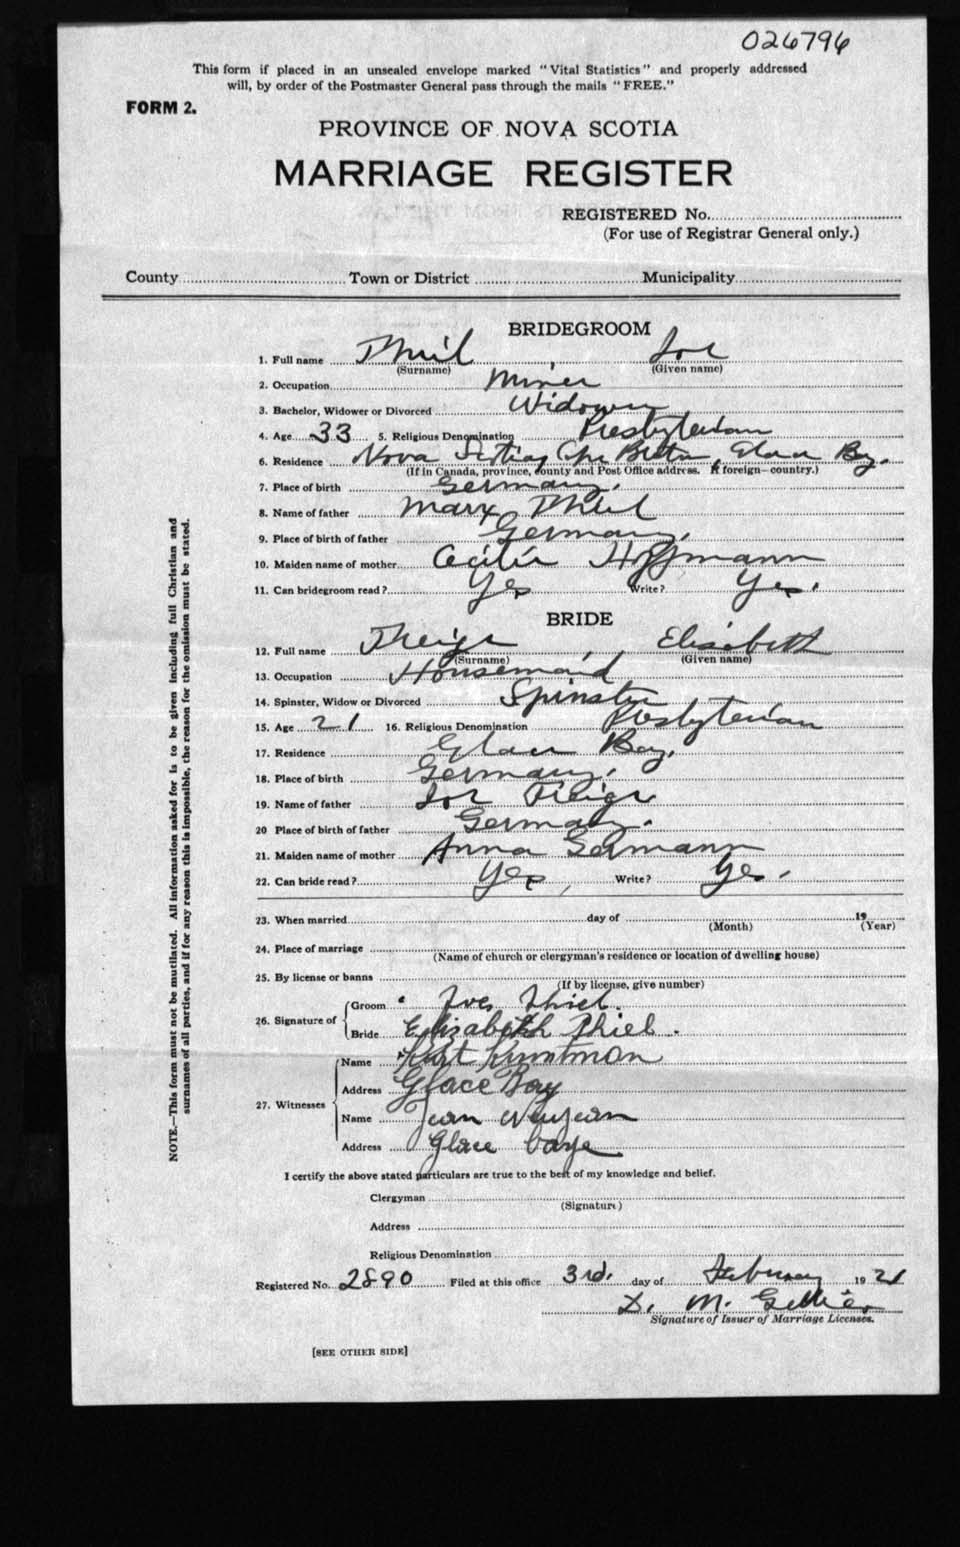 026796
This form if placed in an unsealed envelope marked "Vital Statistics" and properly addressed
will, by order of the Postmaster General pass through the mails "FREE."
FORM 2.
PROVINCE OF NOVA SCOTIA
MARRIAGE REGISTER
REGISTERED No.
(For use of Registrar General only.)
County Town or District Municipality
BRIDEGROOM
1. Full name Thiel Joe
(Surname) (Given name)
2. Occupation Miner
3. Bachelor, Widower or Divorced Widower
4. Age 33 5. Religious Denomination Presbyterian
6. Residence Nova Scotia, Cape Breton, Glace Bay.
(If in Canada, province, county and Post Office address. If foreign—country.)
7. Place of birth Germany.
8. Name of father Marx Thiel
9. Place of birth of father Germany.
10. Maiden name of mother Cecilie Hoffmann
11. Can bridegroom read? Yes Write? Yes.
BRIDE
12. Full name Elisabeth
(Surname) (Given name)
13. Occupation Housemaid
14. Spinster, Widow or Divorced Spinster
15. Age 21 16. Religious Denomination Presbyterian
17. Residence Glace Bay.
18. Place of birth Germany.
19. Name of father Joe
20 Place of birth of father Germany.
21. Maiden name of mother Anna Germann
22. Can bride read? Yes, Write? Yes.
23. When married day of 19
(Month) (Year)
24. Place of marriage
(Name of church or clergyman's residence or location of dwelling house)
25. By license or banns
(If by license, give number)
26. Signature of Groom Thiel.
Bride Elizabeth Thiel.
27. Witnesses Name Kurt
Address Glace Bay
Name Jean
Address Glace baye
I certify the above stated particulars are true to the best of my knowledge and belief.
Clergyman
(Signature)
Address
Religious Denomination
Registered No. 2890 Filed at this office 3rd. day of February 1921
D. M.
Signature of Issuer of Marriage Licenses.
[SEE OTHER SIDE]
NOTE.—This form must not be mutilated. All information asked for is to be given including full Christian and
surnames of all parties, and if for any reason this is impossible, the reason for the omission must be stated.